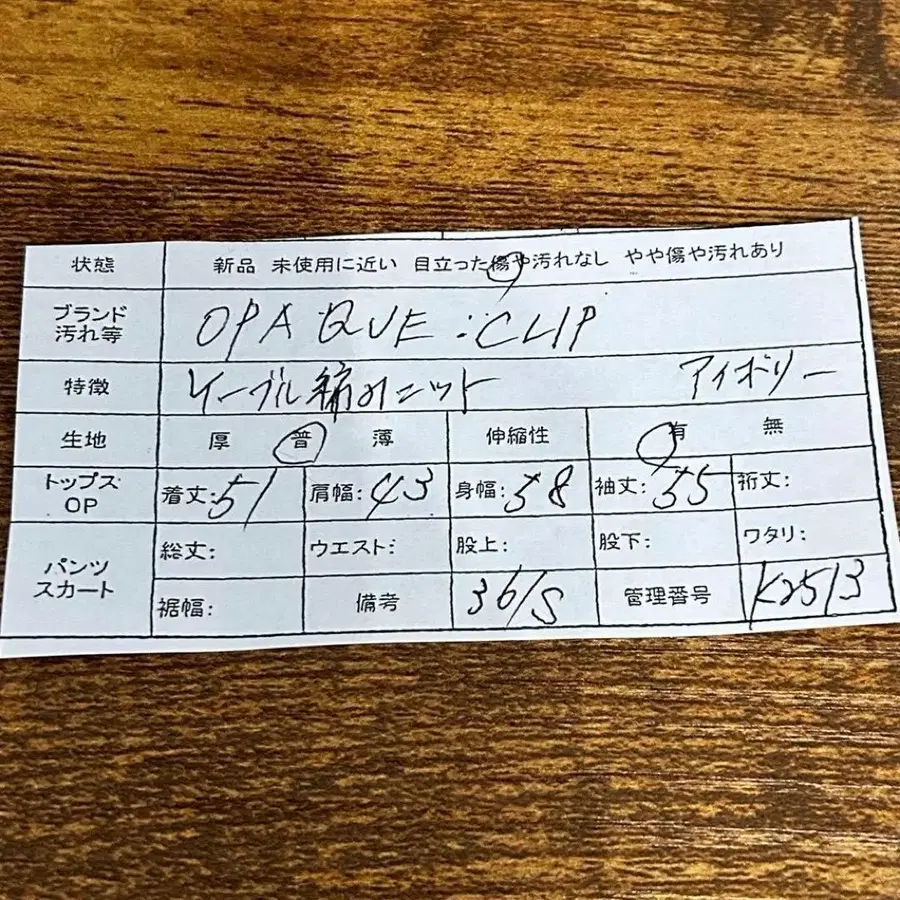 状態 新品 未使用に近い 目立った傷や汚れなし やや傷や汚れあり
ブランド 汚れ等 OPAQUE:CLIP
特徴 ケーブル編みニット アイボリー
生地 厚 普 薄 伸縮性 有 無
トップス OP 着丈:51 肩幅:43 身幅:58 袖丈:55 裄丈:
パンツ スカート 総丈: ウエスト: 股上: 股下: ワタリ:
裾幅: 備考 36/S 管理番号 K2513